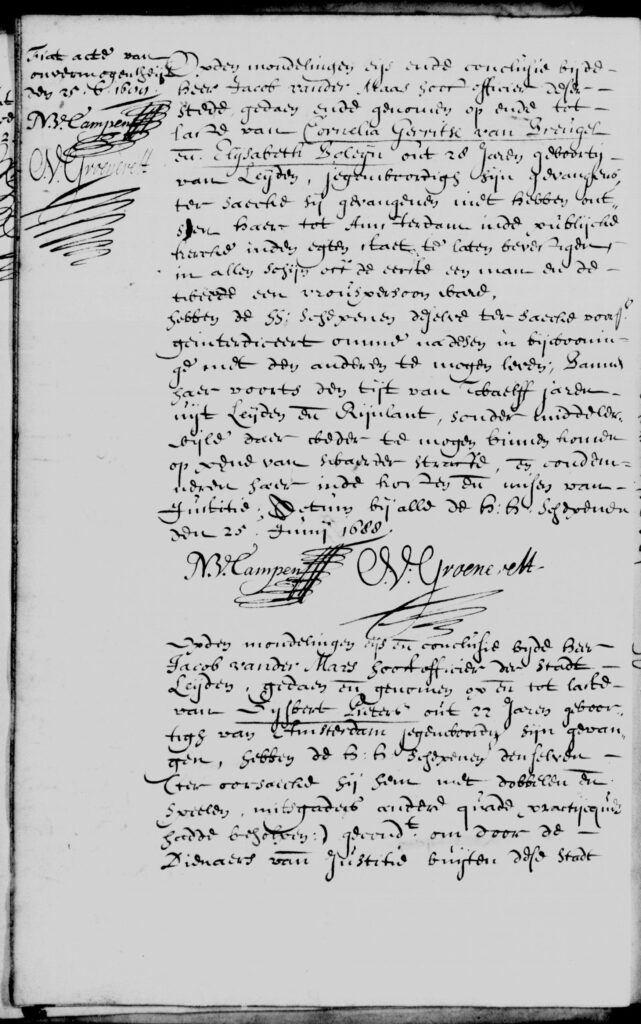 Fiat acte van
onvermogentheijt
den 25
N. V. Campen
N. Groenevelt
Opden mondelingen eijs ende conclusie bij de
Heer Jacob vander Maas hooft officier deser
stede, gedaen ende genomen op ende tot
laste van Cornelia Gerritse van Breugel
en Elijsabeth Boleijn out 28 Jaren geboortigh
van Leijden, jegenwoordigh hijn gevangens
ter saecke sij gevangenen met hebben ont-
sien haer tot Amsterdam inde publijcke
kercke inden egten staet te laten bevestigen
in allen schijn off de eerste een man en de
tweede een vrouspersoon ware,
hebben de HH: Schepenen deselve ter saecke voors.
geinterdiceert omme nadesen in bijwoonin-
ge met den anderen te mogen leven; Banne
haer voorts den tijt van twaelff jaren
uijt Leijden en Rijnlant, sonder middeler
wijle daer weder te mogen binnen komen
op pene van swaerder straffe, en condem-
neren haer inde kosten en misen van
Justitie, Actum bij alle de H: H: Schepenen
den 25 Junij 1688.
N. V. Campen N. Groenevelt
Opden mondelingen eijs en conclusie bijde Heer
Jacob vander Maes hooft officier der Stadt
Leijden, gedaen en genomen op en tot laste
van Gijsbert Pieters out 22 Jaren geboor-
tigh van Amsterdam jegenwoordigh sijn gevan-
gen, hebben de H: H: Schepenen denselven
(ter oorsaecke hij hem met dobbelen en
speelen, mitsgaders andere quade practijcque
hadde beholpen:) gecondt. om door de
Dienaers van Justitie buijten dese Stadt